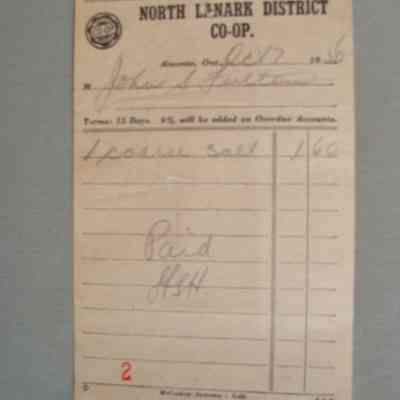 NORTH LANARK DISTRICT
CO-OP.
Almonte, Ont. Oct 7 1956
M John S Fulton
Terms: 15 Days. 6% will be added on Overdue Accounts.
1 coarse salt 1 60
Paid
2